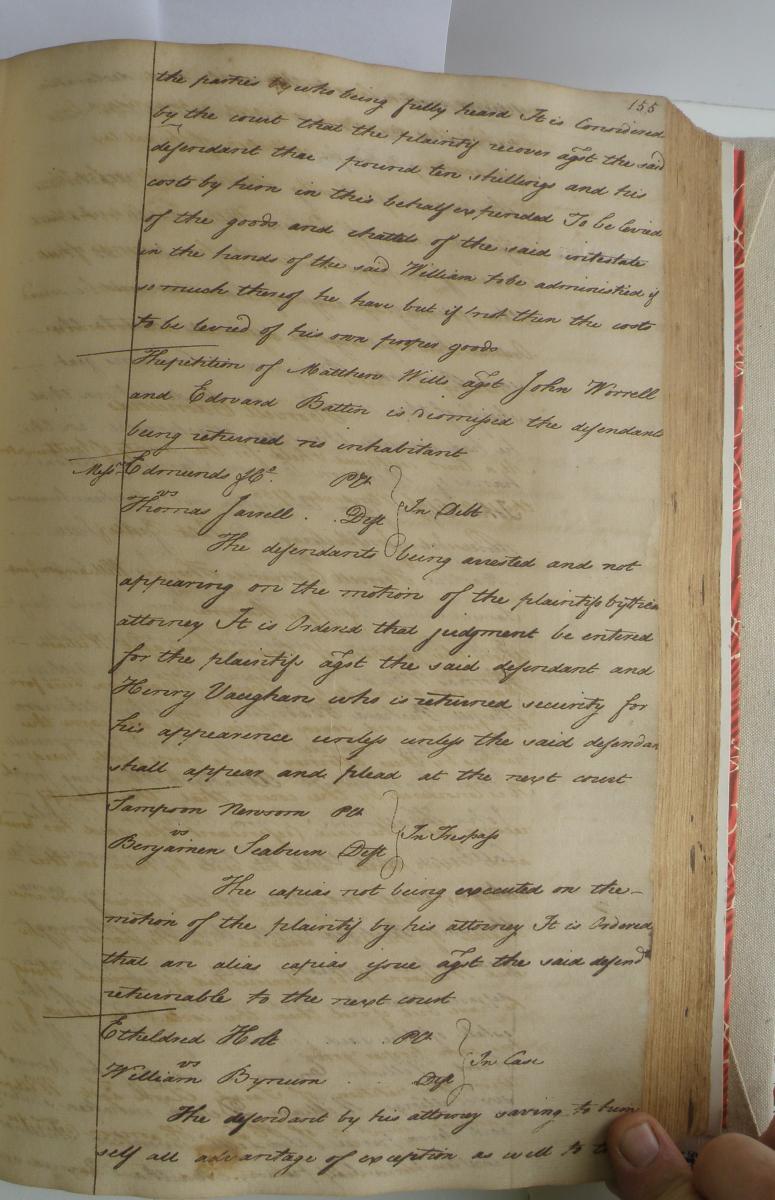 155
the parties by who being fully heard It is Considered
by the court that the plaintif recover agst the said
defendant thre pound ten shillings and his
costs by him in this behalf expended To be levied
of the goods and chattels of the said intestate
in the hands of the said William to be administred if
so much thereof he have but if not then the costs
to be levied of his own proper goods
The petition of Matthew Wills agst John Worrell
and Edward Battin is dismissed the defendants
being returned no inhabitant
Messrs Edmunds & Co. Plt
vs
Thomas Jarrell . . Deft
In Debt
The defendants being arrested and not
appearing on the motion of the plaintifs by their
attorney It is Ordered that judgment be entered
for the plaintifs agst the said defendant and
Henry Vaughan who is returned security for
his appearence unless unless the said defendan
shall appear and plead at the next court
Sampson Newsom Plt
vs
Benjamen Seaburn Deft
In Trespass
The capias not being executed on the
motion of the plaintif by his attorney It is Ordered
that an alias capias issue agst the said defend
returnable to the next court
Etheldred Holt Plt
vs
William Bynum . . Deft
In Case
The defendant by his attorney saving to him
self all advantage of exception as well to